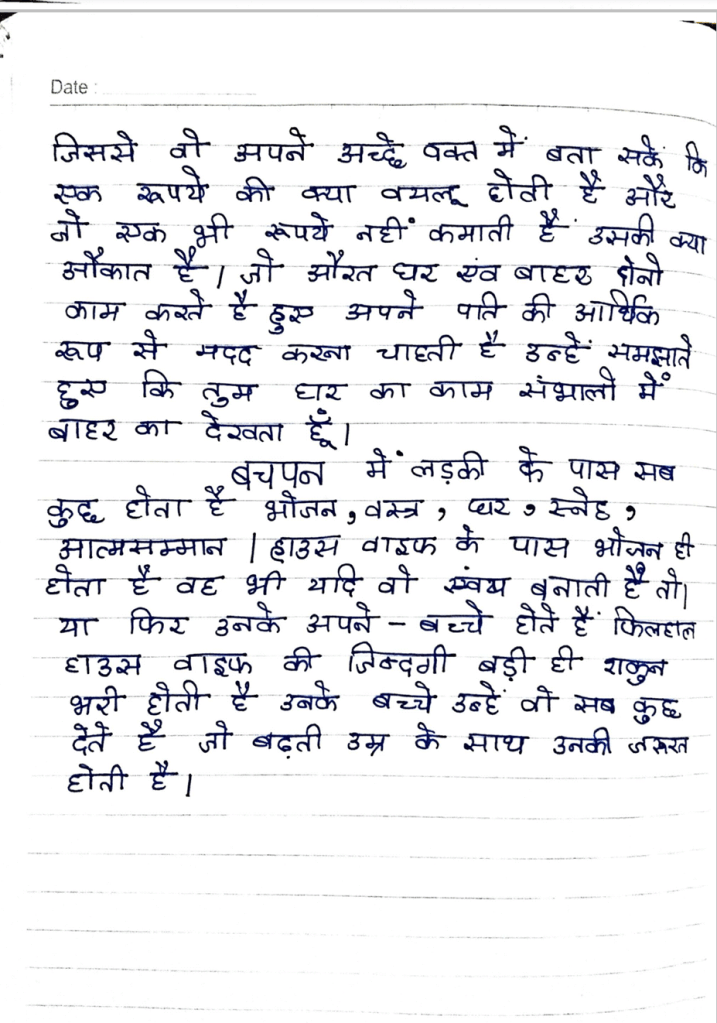 Date :
जिससे वो अपने अच्छे वक्त में बता सकें कि
एक रूपये की क्या वयलू होती है और
जो एक भी रूपये नहीं कमाती है उसकी क्या
औकात है। जो औरत घर एंव बाहर दोनो
काम करते है हुए अपने पति की आर्थिक
रूप से मदद करना चाहती है उन्हें समझाते
हुए कि तुम घर का काम संभालो में
बाहर का देखता हूँ।
बचपन में लड़की के पास सब
कुछ होता है भोजन, वस्त्र, घर, स्नेह,
आत्मसम्मान। हाउस वाइफ के पास भोजन ही
होता है वह भी यदि वो स्वंय बनाती है तो।
या फिर उनके अपने - बच्चे होते हैं फिलहाल
हाउस वाइफ की जिन्दगी बड़ी ही शकुन
भरी होती है उनके बच्चे उन्हें वो सब कुछ
देते है जो बढ़ती उम्र के साथ उनकी जरूरत
होती है।